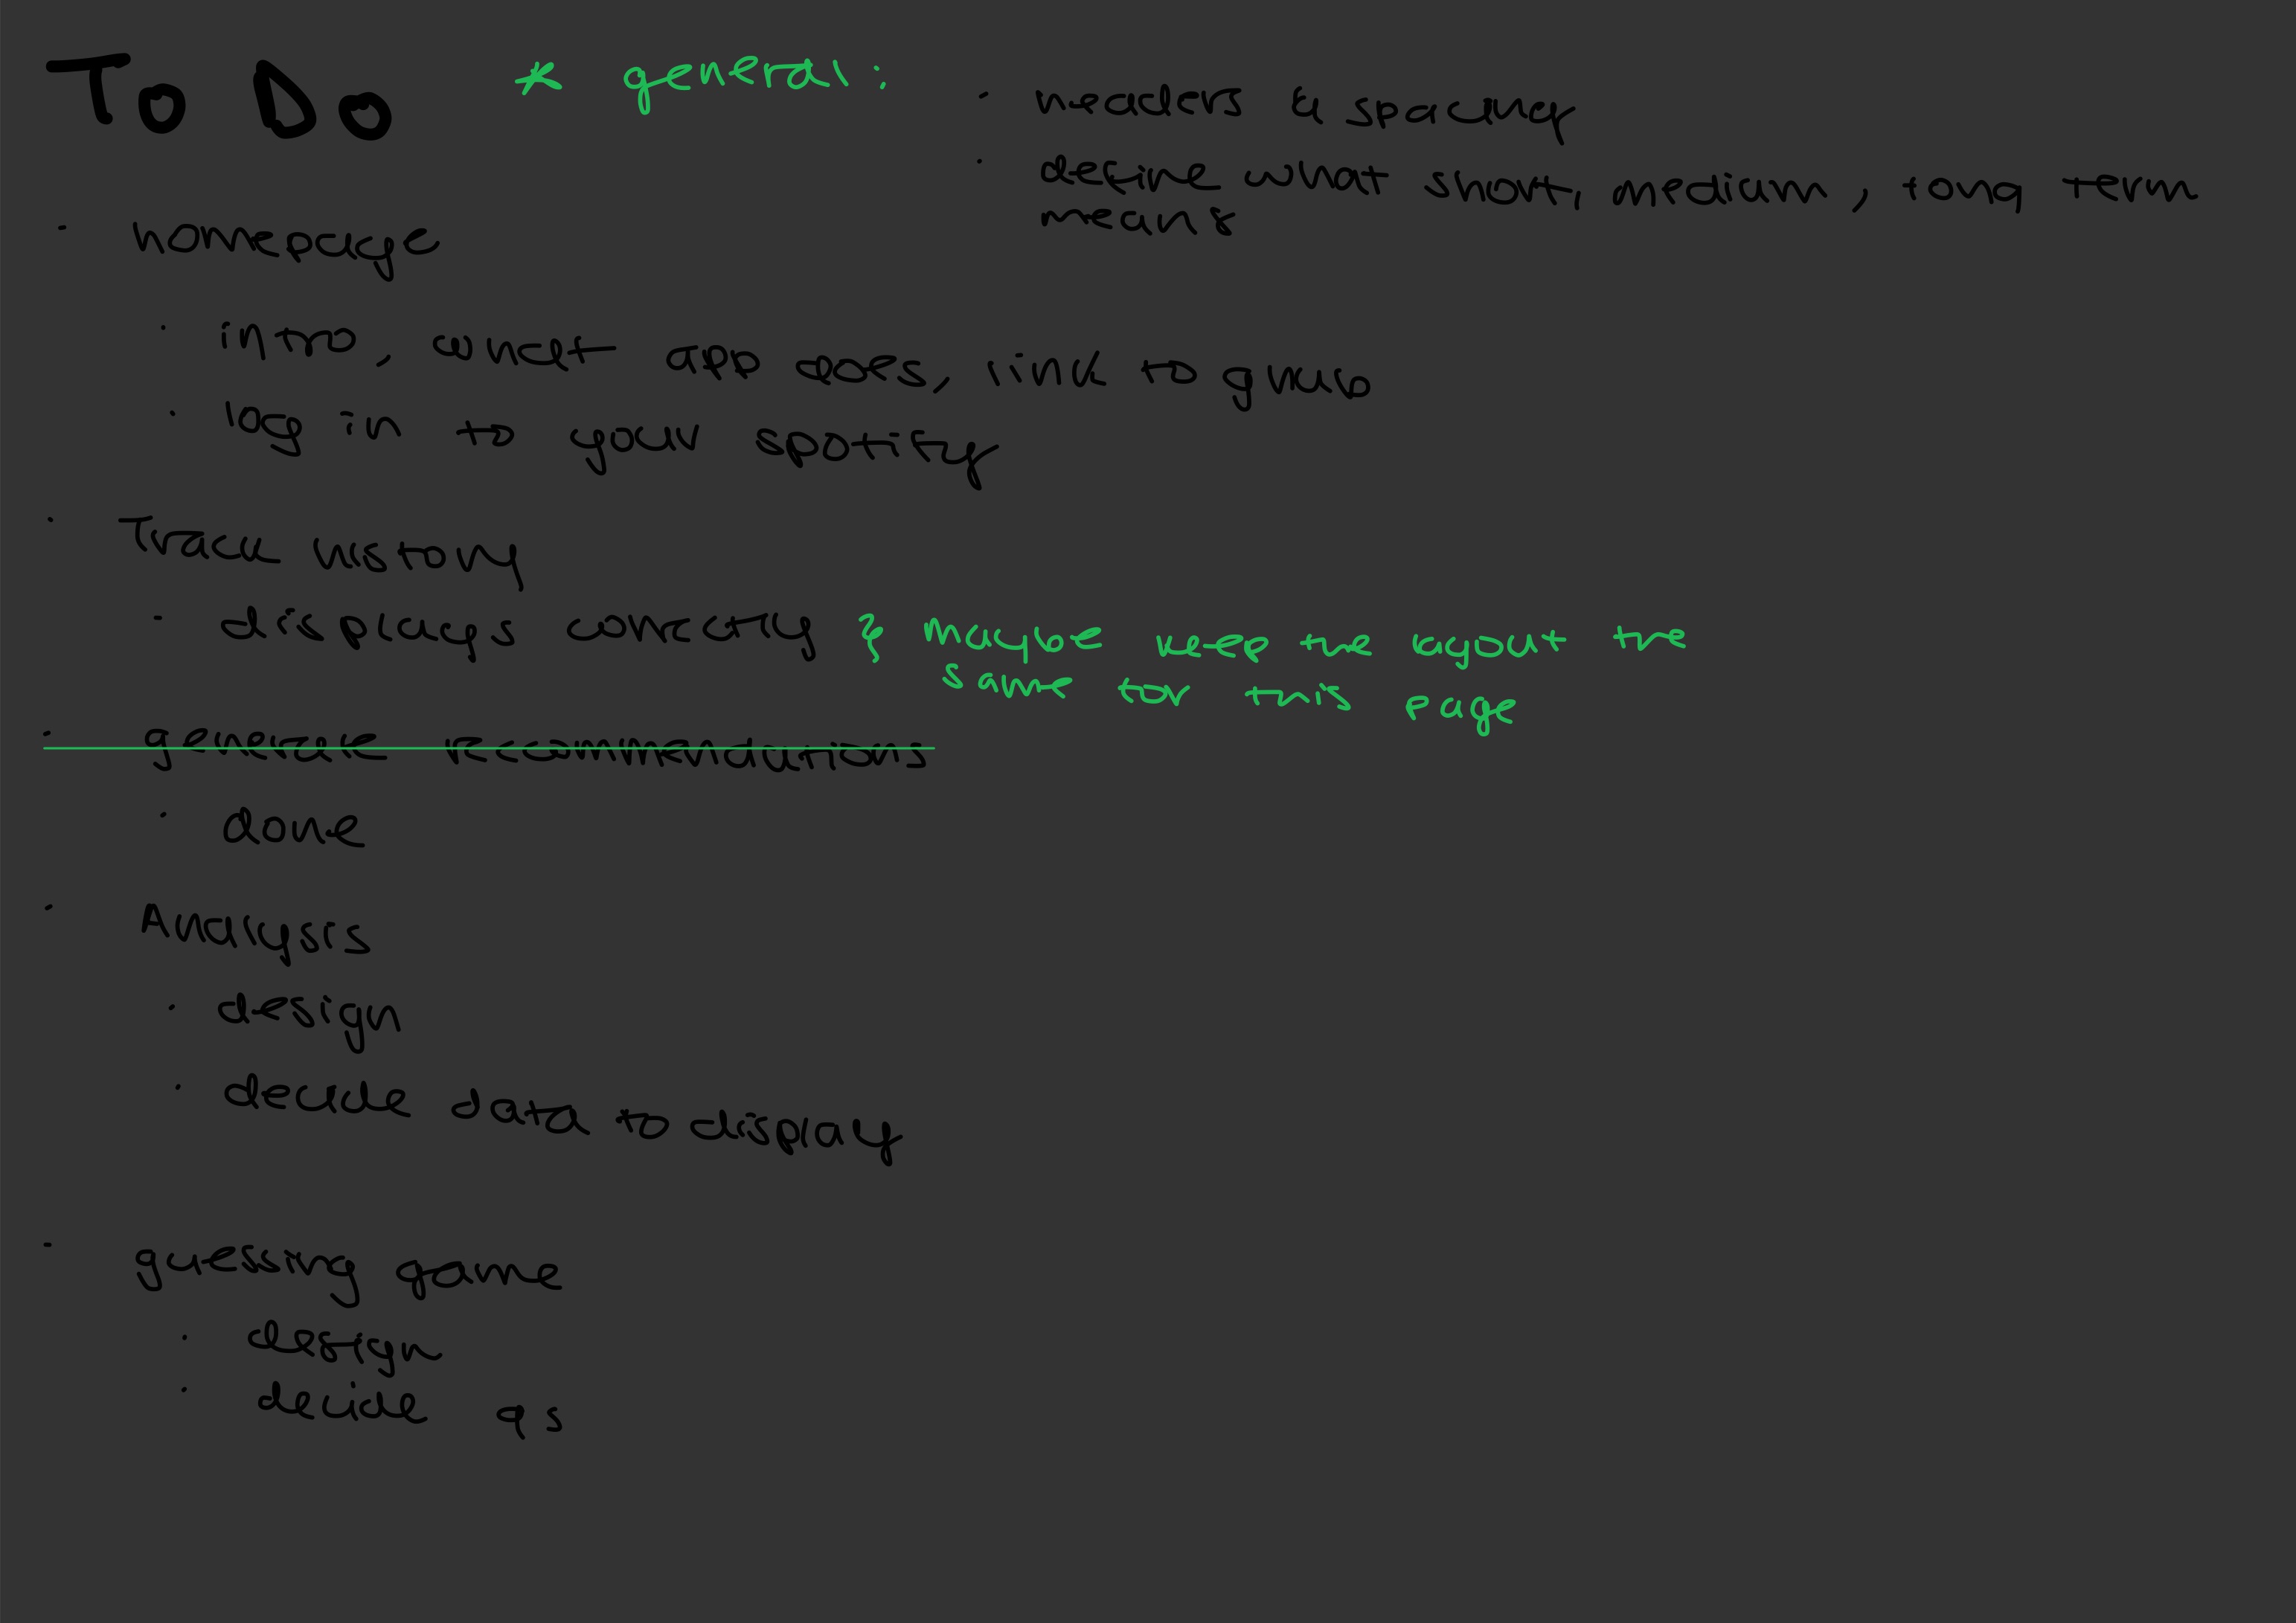 To Do
* general:
· headers & spacing
· define what short, medium, long term
means
· homepage
· intro, what app does, link to github
· log in to your spotify
· Track history
· displays correctly
} maybe keep the layout the
same for this page
· genre recommendations
· done
· Analysis
· design
· decide data to display
· guessing game
· design
· decide qs